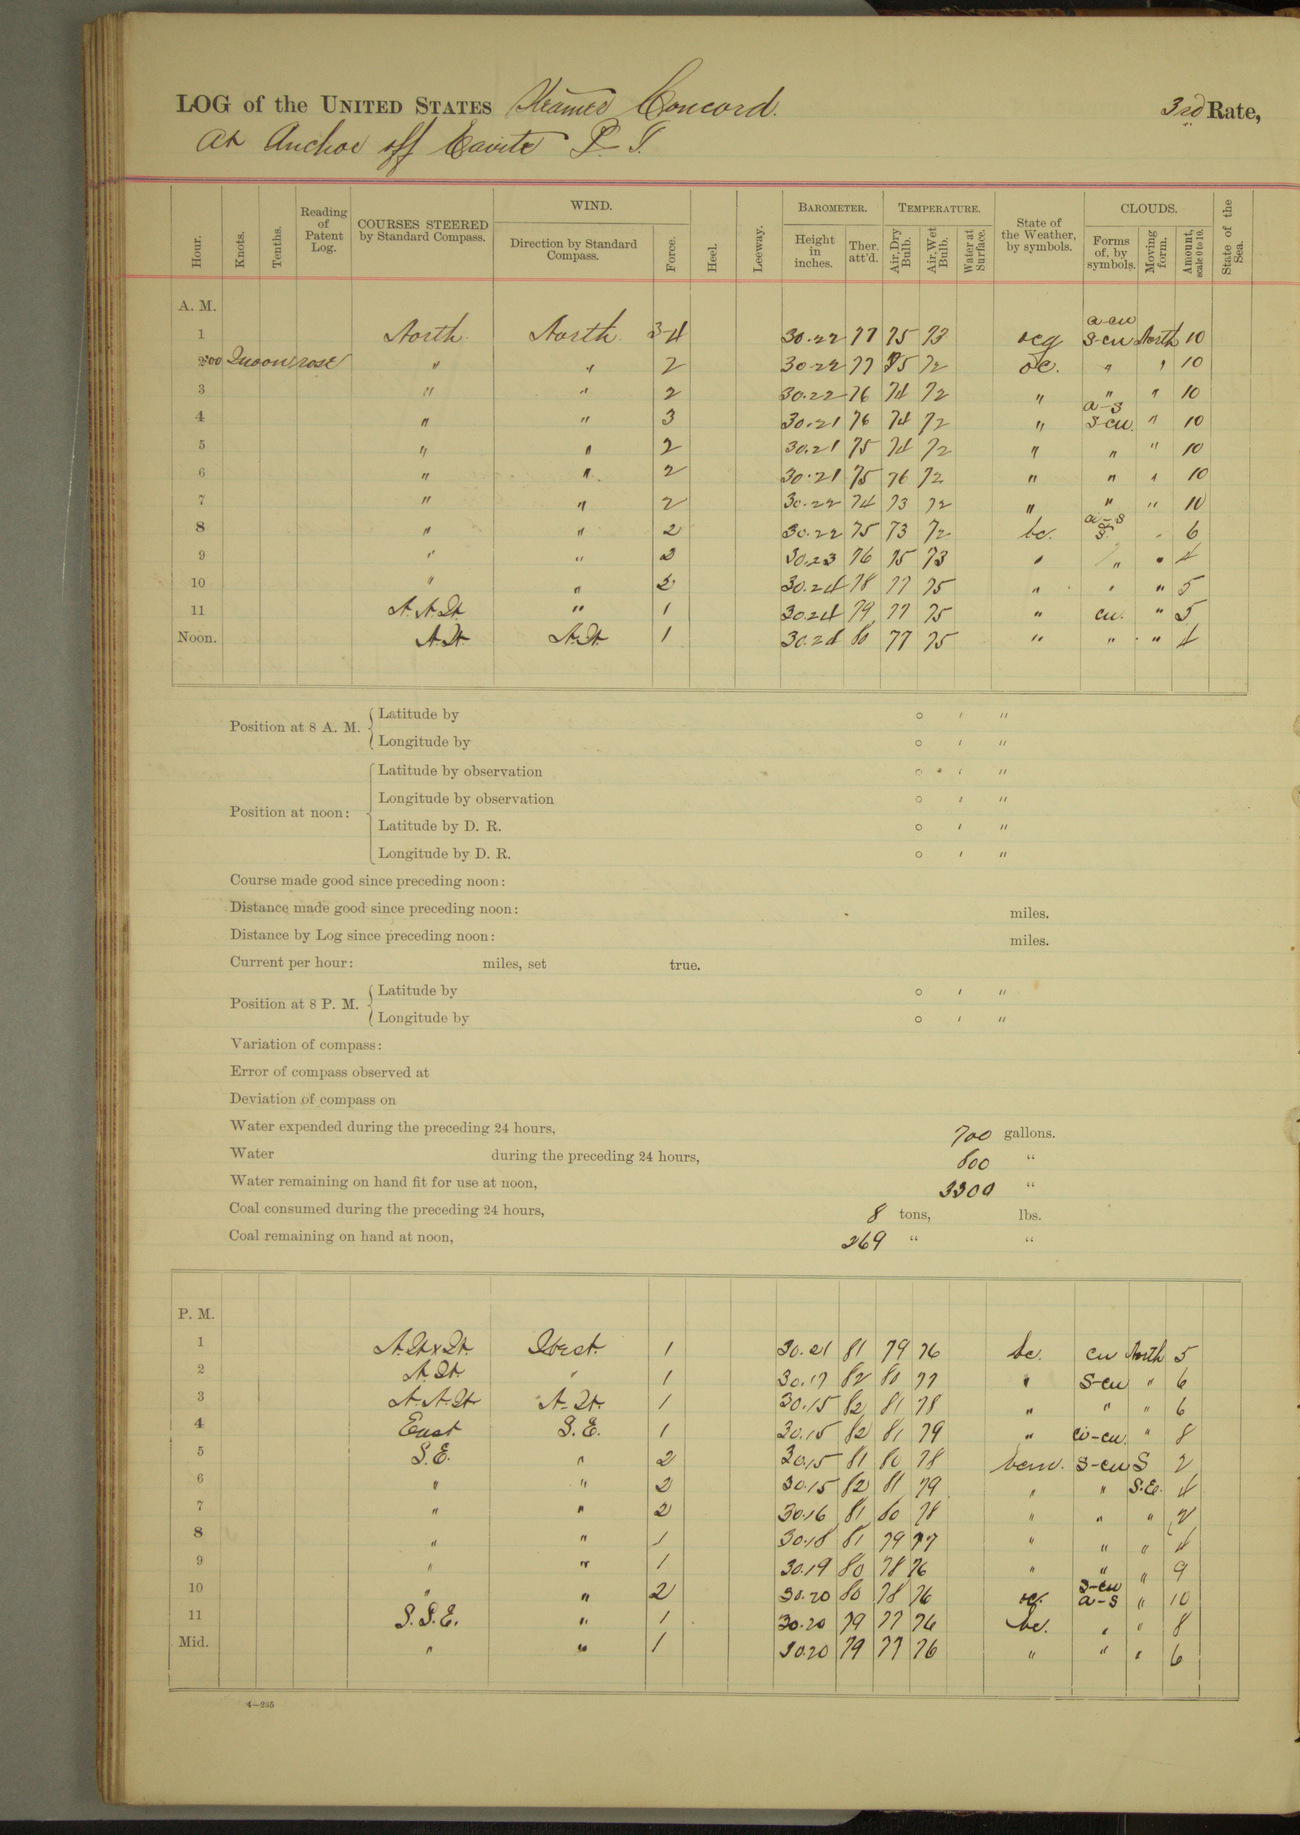 LOG of the UNITED STATES Steamer Concord. 3rd Rate,
At Anchor off Cavite P. I.
Hour. Knots. Tenths. Reading of Patent Log. COURSES STEERED by Standard Compass. WIND. Direction by Standard Compass. Force. Heel. Leeway. BAROMETER. Height in inches. Ther. att'd. TEMPERATURE. Air, Dry Bulb. Air, Wet Bulb. Water at Surface. State of the Weather, by symbols. CLOUDS. Forms of, by symbols. Moving form. Amount, scale 0 to 10. State of the Sea.
A. M.
1 North North 3-4 30.22 77 75 73 ocg a-cu s-cu North 10
2 00 moon rose " " 2 30.22 77 75 72 oc. " " 10
3 " " 2 30.22 76 74 72 " " " 10
4 " " 3 30.21 76 74 72 " a-s s-cu. " 10
5 " " 2 30.21 75 74 72 " " " 10
6 " " 2 30.21 75 76 72 " " " 10
7 " " 2 30.22 74 73 72 " " " 10
8 " " 2 30.22 75 73 72 bc. s. " 6
9 " " 2 30.23 76 75 73 " " " 4
10 " " 2 30.24 78 77 75 " " " 5
11 N.N.W. " 1 30.24 79 77 75 " cu. " 5
Noon. N.W. N.W. 1 30.24 80 77 75 " " " 4
Position at 8 A. M. Latitude by ° ′ ″
Longitude by ° ′ ″
Position at noon: Latitude by observation ° ′ ″
Longitude by observation ° ′ ″
Latitude by D. R. ° ′ ″
Longitude by D. R. ° ′ ″
Course made good since preceding noon:
Distance made good since preceding noon: miles.
Distance by Log since preceding noon: miles.
Current per hour: miles, set true.
Position at 8 P. M. Latitude by ° ′ ″
Longitude by ° ′ ″
Variation of compass:
Error of compass observed at
Deviation of compass on
Water expended during the preceding 24 hours, 700 gallons.
Water during the preceding 24 hours, 800 "
Water remaining on hand fit for use at noon, 3300 "
Coal consumed during the preceding 24 hours, 8 tons, lbs.
Coal remaining on hand at noon, 269 " "
P. M.
1 N.W.xW. West. 1 30.21 81 79 76 bc. cu North 5
2 N.W. " 1 30.17 82 80 77 " s-cu " 6
3 N.N.W N.W. 1 30.15 82 81 78 " " " 6
4 East S.E. 1 30.15 82 81 79 " ci-cu. " 8
5 S.E. " 2 30.15 81 80 78 bcm. s-cu S 2
6 " " 2 30.15 82 81 79 " " S.E. 4
7 " " 2 30.16 81 80 78 " " " 2
8 " " 1 30.18 81 79 77 " " " 4
9 " " 1 30.19 80 78 76 " " " 9
10 " " 2 30.20 80 78 76 oc. s-cu a-s " 10
11 S.S.E. " 1 30.20 79 77 76 bc. " " 8
Mid. " " 1 30.20 79 77 76 " " " 6
4—235